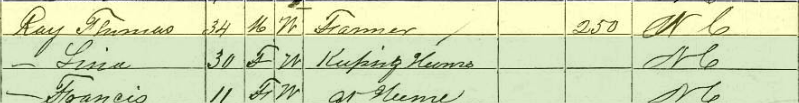 Ray Thomas 34 M W Farmer 250 N C
— Lina 30 F W Keeping House N C
— Francis 11 F W At Home N C